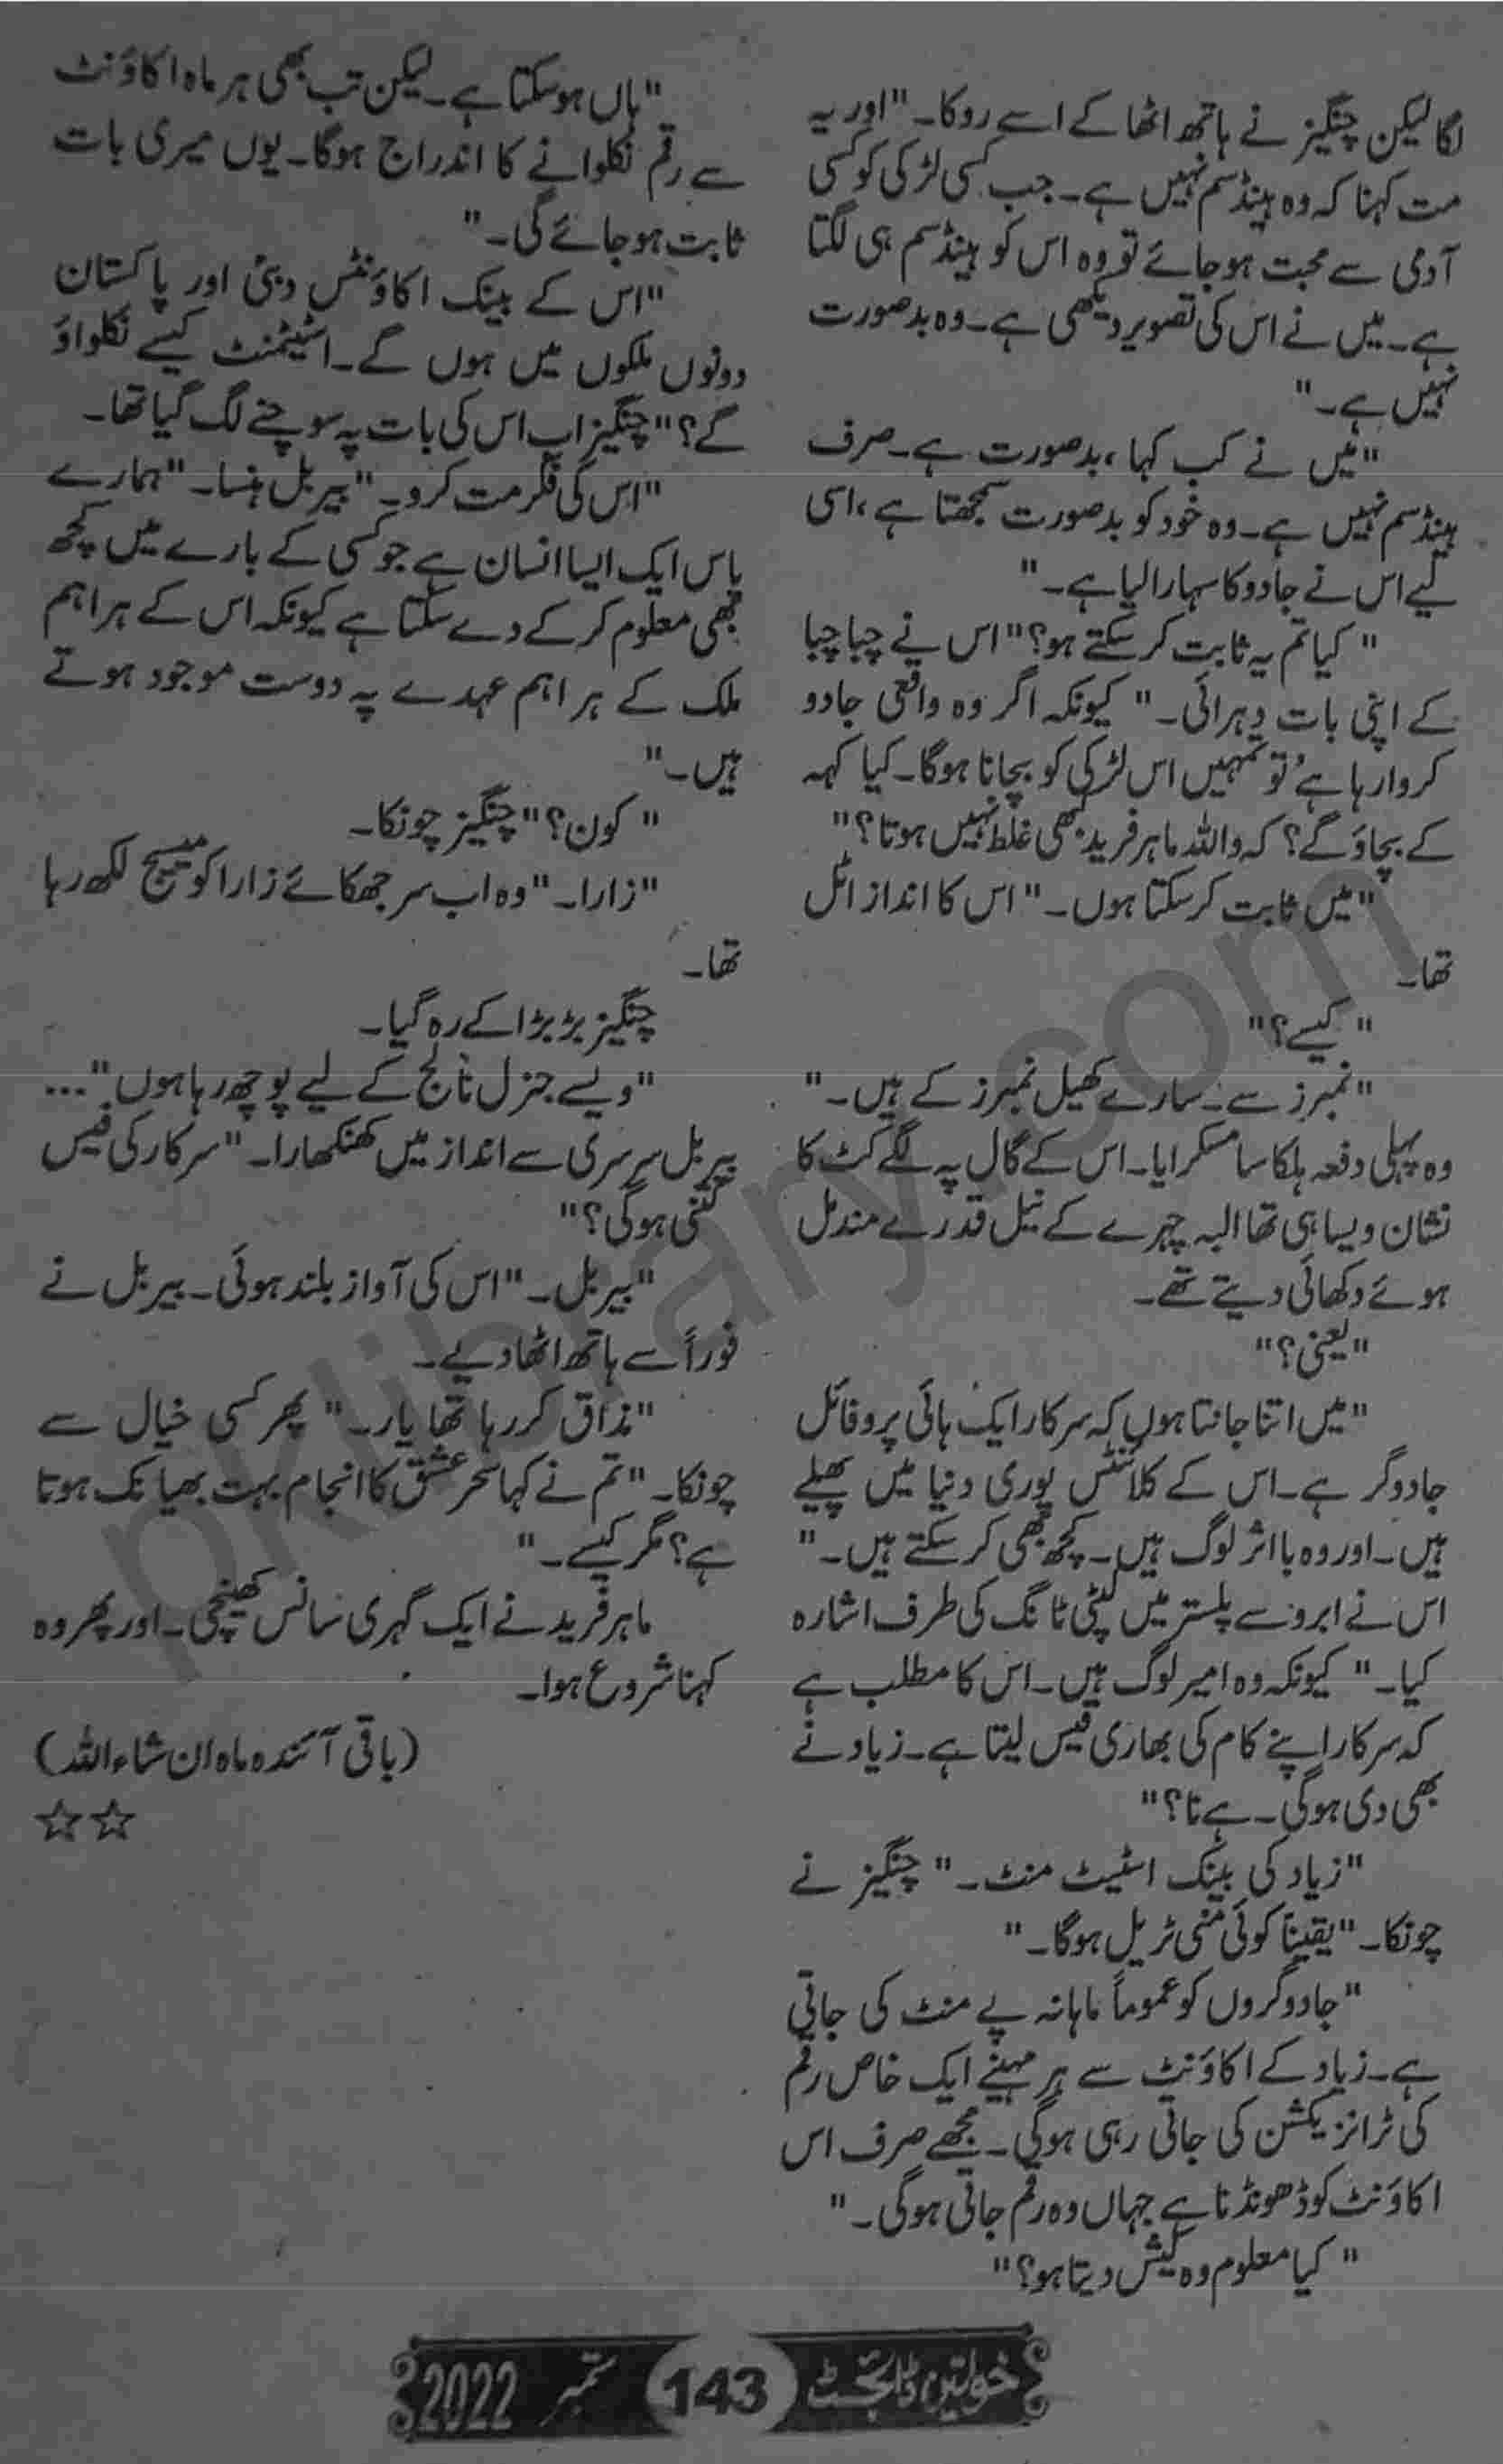 لگا لیکن چنگیز نے ہاتھ اٹھا کے اسے روکا۔ "اور یہ
مت کہنا کہ وہ ہینڈسم نہیں ہے۔ جب کسی لڑکی کو کسی
آدمی سے محبت ہو جائے تو وہ اس کو ہینڈسم ہی لگتا
ہے۔ میں نے اس کی تصویر دیکھی ہے۔ وہ بدصورت
نہیں ہے۔"
"میں نے کب کہا، بدصورت ہے۔ صرف
ہینڈسم نہیں ہے۔ وہ خود کو بدصورت سمجھتا ہے، اسی
لیے اس نے جادو کا سہارا لیا ہے۔"
"کیا تم یہ ثابت کر سکتے ہو؟" اس نے چبا چبا
کے اپنی بات دہرائی۔ "کیونکہ اگر وہ واقعی جادو
کروا رہا ہے تو تمہیں اس لڑکی کو بچانا ہوگا۔ کیا کہہ
کے بچاؤ گے؟ کہ واللہ ماہر فرید کبھی غلط نہیں ہوتا؟"
"میں ثابت کر سکتا ہوں۔" اس کا انداز اٹل
تھا۔
"کیسے؟"
"نمبرز سے۔ سارے کھیل نمبرز کے ہیں۔"
وہ پہلی دفعہ ہلکا سا مسکرایا۔ اس کے گال پہ لگے کٹ کا
نشان ویسا ہی تھا البتہ چہرے کے نیل قدرے مندمل
ہوئے دکھائی دیتے تھے۔
"یعنی؟"
"میں اتنا جانتا ہوں کہ سرکار ایک ہائی پروفائل
جادوگر ہے۔ اس کے کلائنٹس پوری دنیا میں پھیلے
ہیں۔ اور وہ بااثر لوگ ہیں۔ کچھ بھی کر سکتے ہیں۔"
اس نے ابرو سے پلستر میں لپٹی ٹانگ کی طرف اشارہ
کیا۔ "کیونکہ وہ امیر لوگ ہیں۔ اس کا مطلب ہے
کہ سرکار اپنے کام کی بھاری فیس لیتا ہے۔ زیاد نے
بھی دی ہوگی۔ ہے نا؟"
"زیاد کی بینک اسٹیٹ منٹ۔" چنگیز نے
چونکا۔ "یقیناً کوئی منی ٹریل ہوگا۔"
"جادوگروں کو عموماً ماہانہ پے منٹ کی جاتی
ہے۔ زیاد کے اکاؤنٹ سے ہر مہینے ایک خاص رقم
کی ٹرانزیکشن کی جاتی رہی ہوگی۔ مجھے صرف اس
اکاؤنٹ کو ڈھونڈنا ہے جہاں وہ رقم جاتی ہوگی۔"
"کیا معلوم وہ کیش دیتا ہو؟"
"ہاں ہو سکتا ہے۔ لیکن تب بھی ہر ماہ اکاؤنٹ
سے رقم نکلوانے کا اندراج ہوگا۔ یوں میری بات
ثابت ہو جائے گی۔"
"اس کے بینک اکاؤنٹس دبئی اور پاکستان
دونوں ملکوں میں ہوں گے۔ اسٹیٹمنٹ کیسے نکلواؤ
گے؟" چنگیز اب اس کی بات پہ سوچنے لگ گیا تھا۔
"اس کی فکر مت کرو۔" بیربل ہنسا۔ "ہمارے
پاس ایک ایسا انسان ہے جو کسی کے بارے میں کچھ
بھی معلوم کر کے دے سکتا ہے کیونکہ اس کے ہر اہم
ملک کے ہر اہم عہدے پہ دوست موجود ہوتے
ہیں۔"
"کون؟" چنگیز چونکا۔
"زارا۔" وہ اب سر جھکائے زارا کو میسج لکھ رہا
تھا۔
چنگیز بڑبڑا کے رہ گیا۔
"ویسے جنرل نالج کے لیے پوچھ رہا ہوں"...
بیربل سرسری سے انداز میں کھنکھارا۔ "سرکار کی فیس
کتنی ہوگی؟"
"بیربل۔" اس کی آواز بلند ہوئی۔ بیربل نے
فوراً سے ہاتھ اٹھا دیے۔
"مذاق کر رہا تھا یار۔" پھر کسی خیال سے
چونکا۔ "تم نے کہا سحر عشق کا انجام بہت بھیانک ہوتا
ہے؟ مگر کیسے۔"
ماہر فرید نے ایک گہری سانس کھینچی۔ اور پھر وہ
کہنا شروع ہوا۔
(باقی آئندہ ماہ ان شاء اللہ)
☆☆
خواتین ڈائجسٹ 143 ستمبر 2022
pklibrary.com